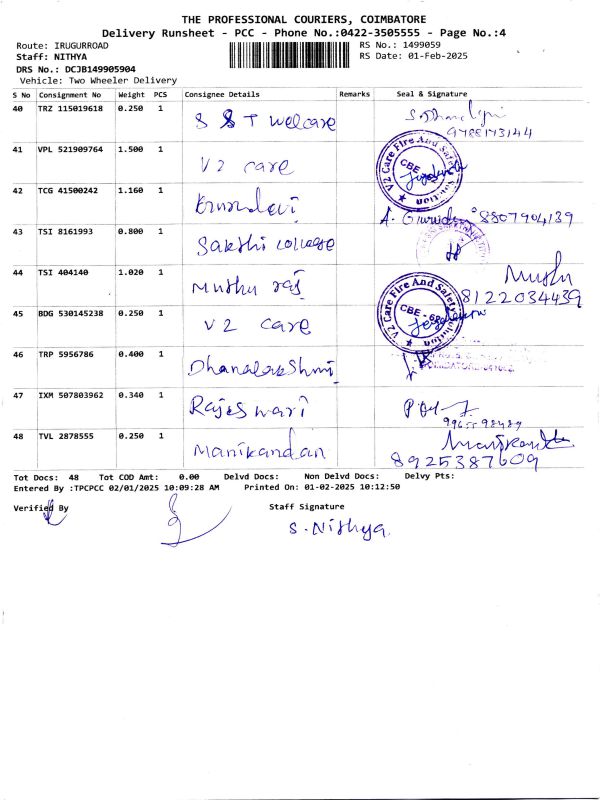 THE PROFESSIONAL COURIERS, COIMBATORE
Delivery Runsheet - PCC - Phone No.:0422-3505555 - Page No.:4
Route: IRUGURROAD RS No.: 1499059
Staff: NITHYA RS Date: 01-Feb-2025
DRS No.: DCJB149905904
Vehicle: Two Wheeler Delivery
S No Consignment No Weight PCS Consignee Details Remarks Seal & Signature
40 TRZ 115019618 0.250 1 S S T welcare
9788173144
41 VPL 521909764 1.500 1 V2 care V2 Care Fire And Safety Solution CBE
42 TCG 41500242 1.160 1 A. Gurudevi 8807904139
43 TSI 8161993 0.800 1 Sakthi college
44 TSI 404140 1.020 1 Muthu raj Muthu
8122034439
45 BDG 530145238 0.250 1 V2 care V2 Care Fire And Safety Solution CBE
46 TRP 5956786 0.400 1 Dhanalakshmi
47 IXM 507803962 0.340 1 Rajeswari
48 TVL 2878555 0.250 1 Manikandan Manikandan
8925387609
Tot Docs: 48 Tot COD Amt: 0.00 Delvd Docs: Non Delvd Docs: Delvy Pts:
Entered By :TPCPCC 02/01/2025 10:09:28 AM Printed On: 01-02-2025 10:12:50
Verified By Staff Signature
S. Nithya